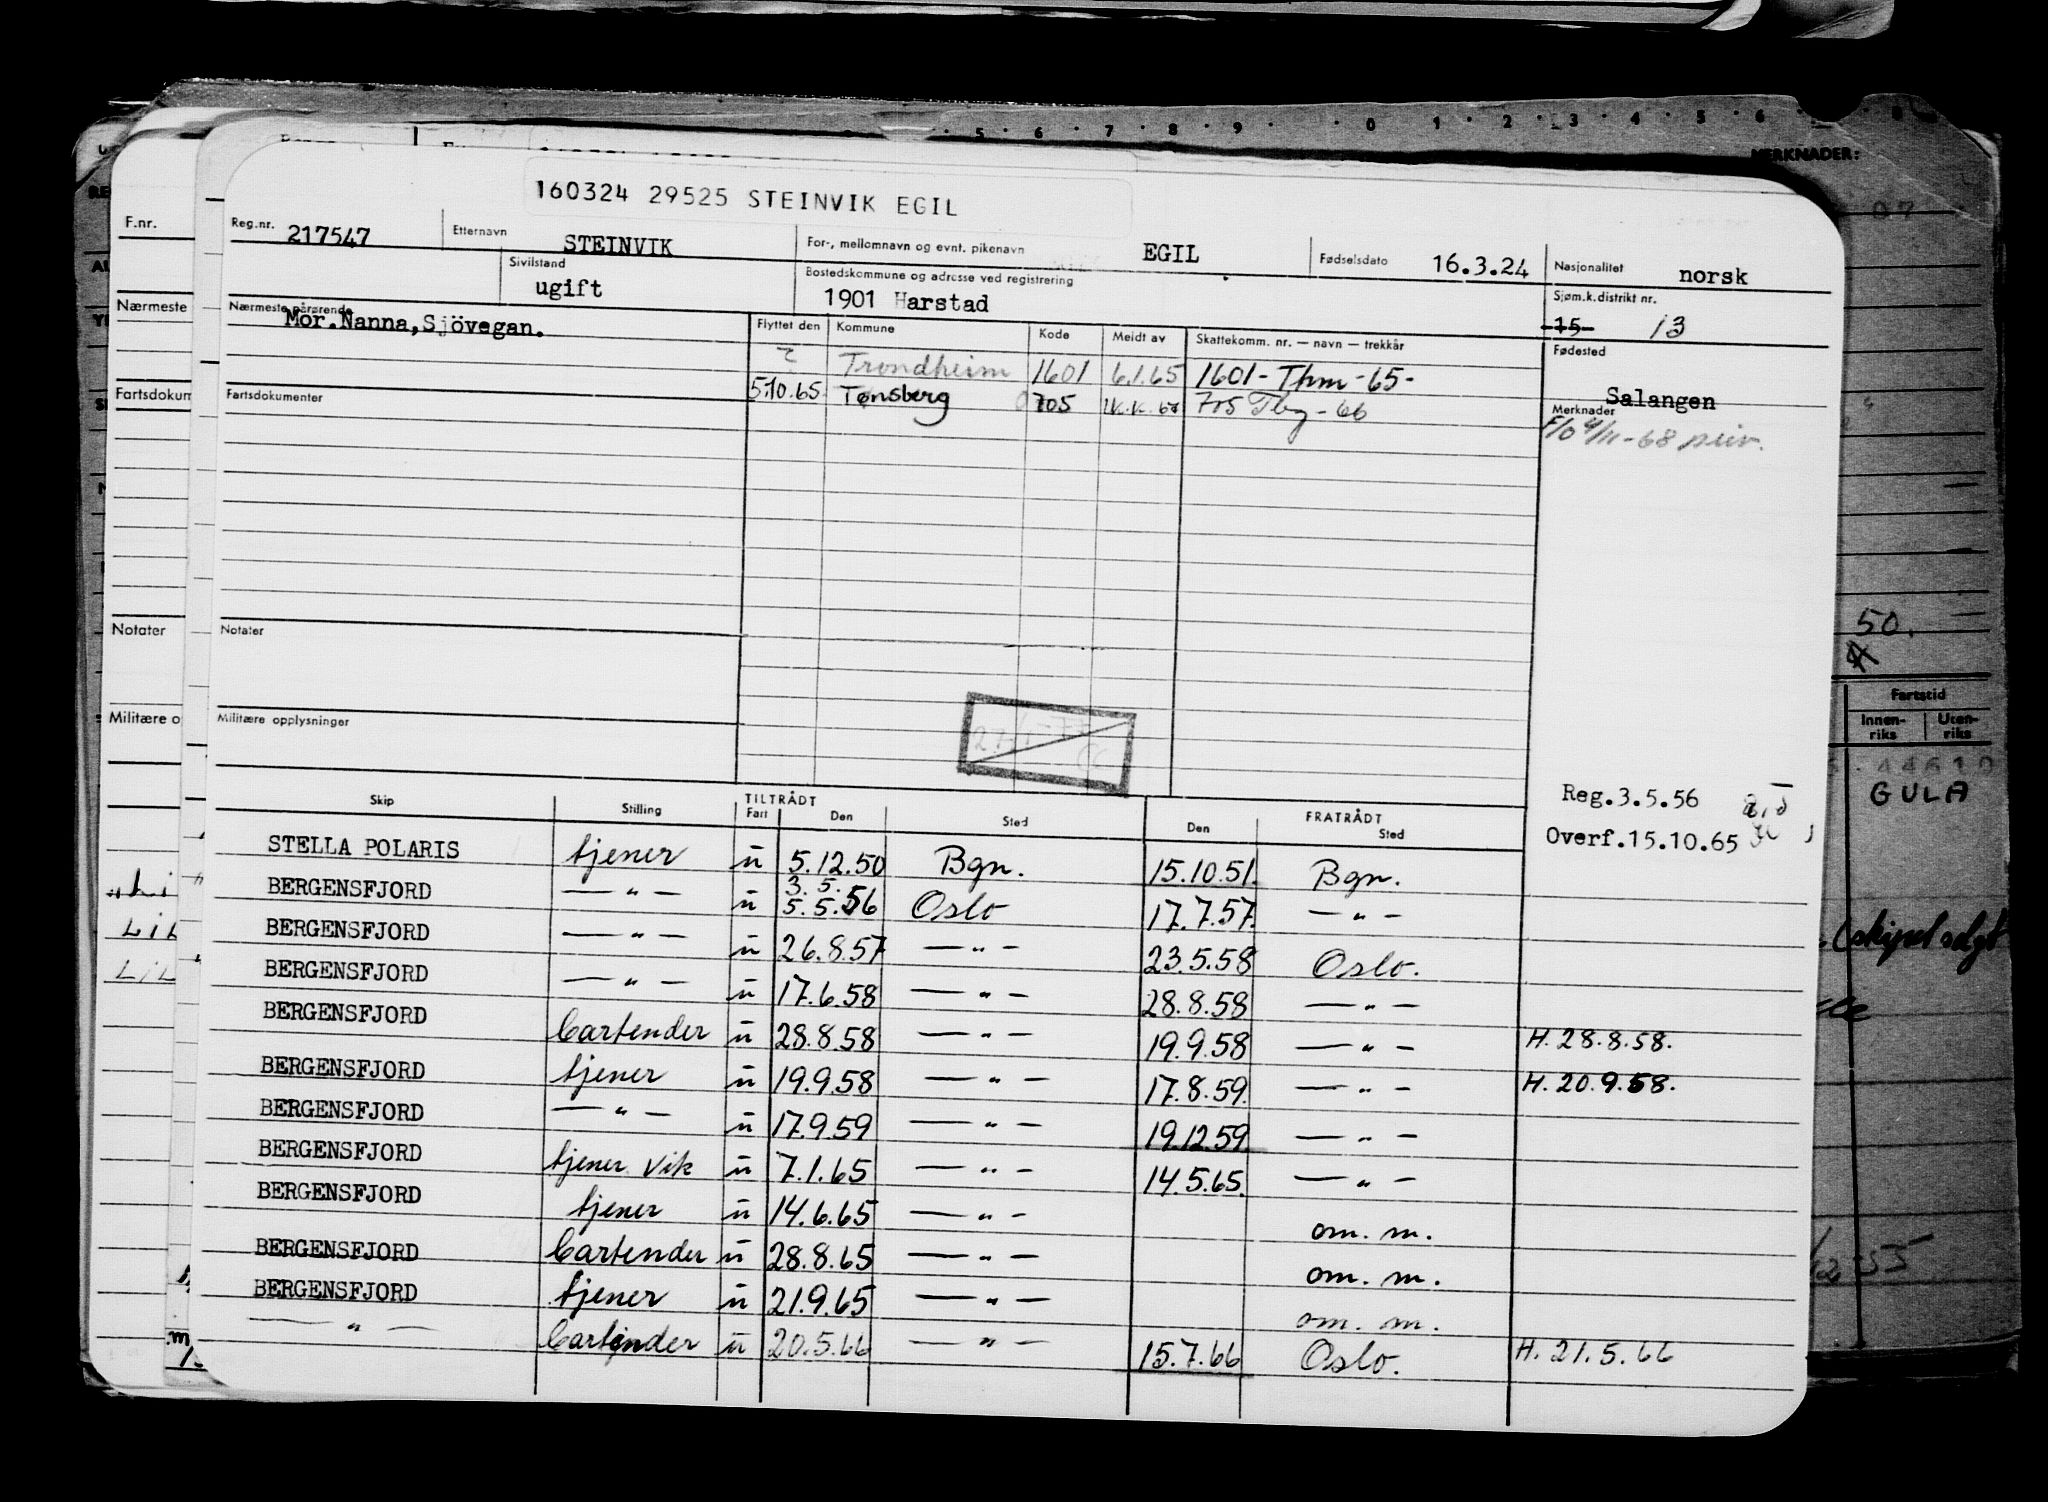 160324 29525 STEINVIK EGIL
Reg.nr. 217547 Etternavn STEINVIK For-, mellomnavn og evnt. pikenavn EGIL Fødselsdato 16.3.24 Nasjonalitet norsk
Sivilstand ugift Bostedskommune og adresse ved registrering 1901 Harstad Sjøm.k.distrikt nr. 15 13
Nærmeste pårørende Mor.Nanna,Sjövegan.
Flyttet den Kommune Kode Meldt av Skattekomm. nr. — navn — trekkår Fødested
Trondheim 1601 6.1.65 1601 - Thm - 65 -
Salangen
Fartsdokumenter 5.10.65 Tønsberg 0705 705 Tbg - 66
Merknader
Notater
Militære opplysninger
Reg.3.5.56
Overf.15.10.65
Skip Stilling TILTRÅDT Fart Den Sted FRATRÅDT Den Sted
STELLA POLARIS tjener ū 5.12.50 Bgn. 15.10.51. Bgn.
3.5.
BERGENSFJORD — " — ū 5.5.56 Oslo 17.7.57. — " —
BERGENSFJORD — " — ū 26.8.57 — " — 23.5.58 Oslo.
BERGENSFJORD — " — ū 17.6.58 — " — 28.8.58 — " —
BERGENSFJORD Bartender ū 28.8.58 — " — 19.9.58 — " — H. 28.8.58.
BERGENSFJORD tjener ū 19.9.58 — " — 17.8.59. — " — H. 20.9.58.
BERGENSFJORD — " — ū 17.9.59 — " — 19.12.59. — " —
BERGENSFJORD tjener vik ū 7.1.65 — " — 14.5.65. — " —
BERGENSFJORD tjener ū 14.6.65 — " — om. m.
BERGENSFJORD Bartender ū 28.8.65 — " — om. m.
BERGENSFJORD tjener ū 21.9.65 — " — om. m.
— " — Bartender ū 20.5.66 — " — 15.7.66 Oslo. H. 21.5.66
F.nr.
Nærmeste
Fartsdokum
Notater
Militære o
MERKNADER:
07
50.
Fartstid
Innen-riks Uten-riks
44610
GULA
(skipet solgt